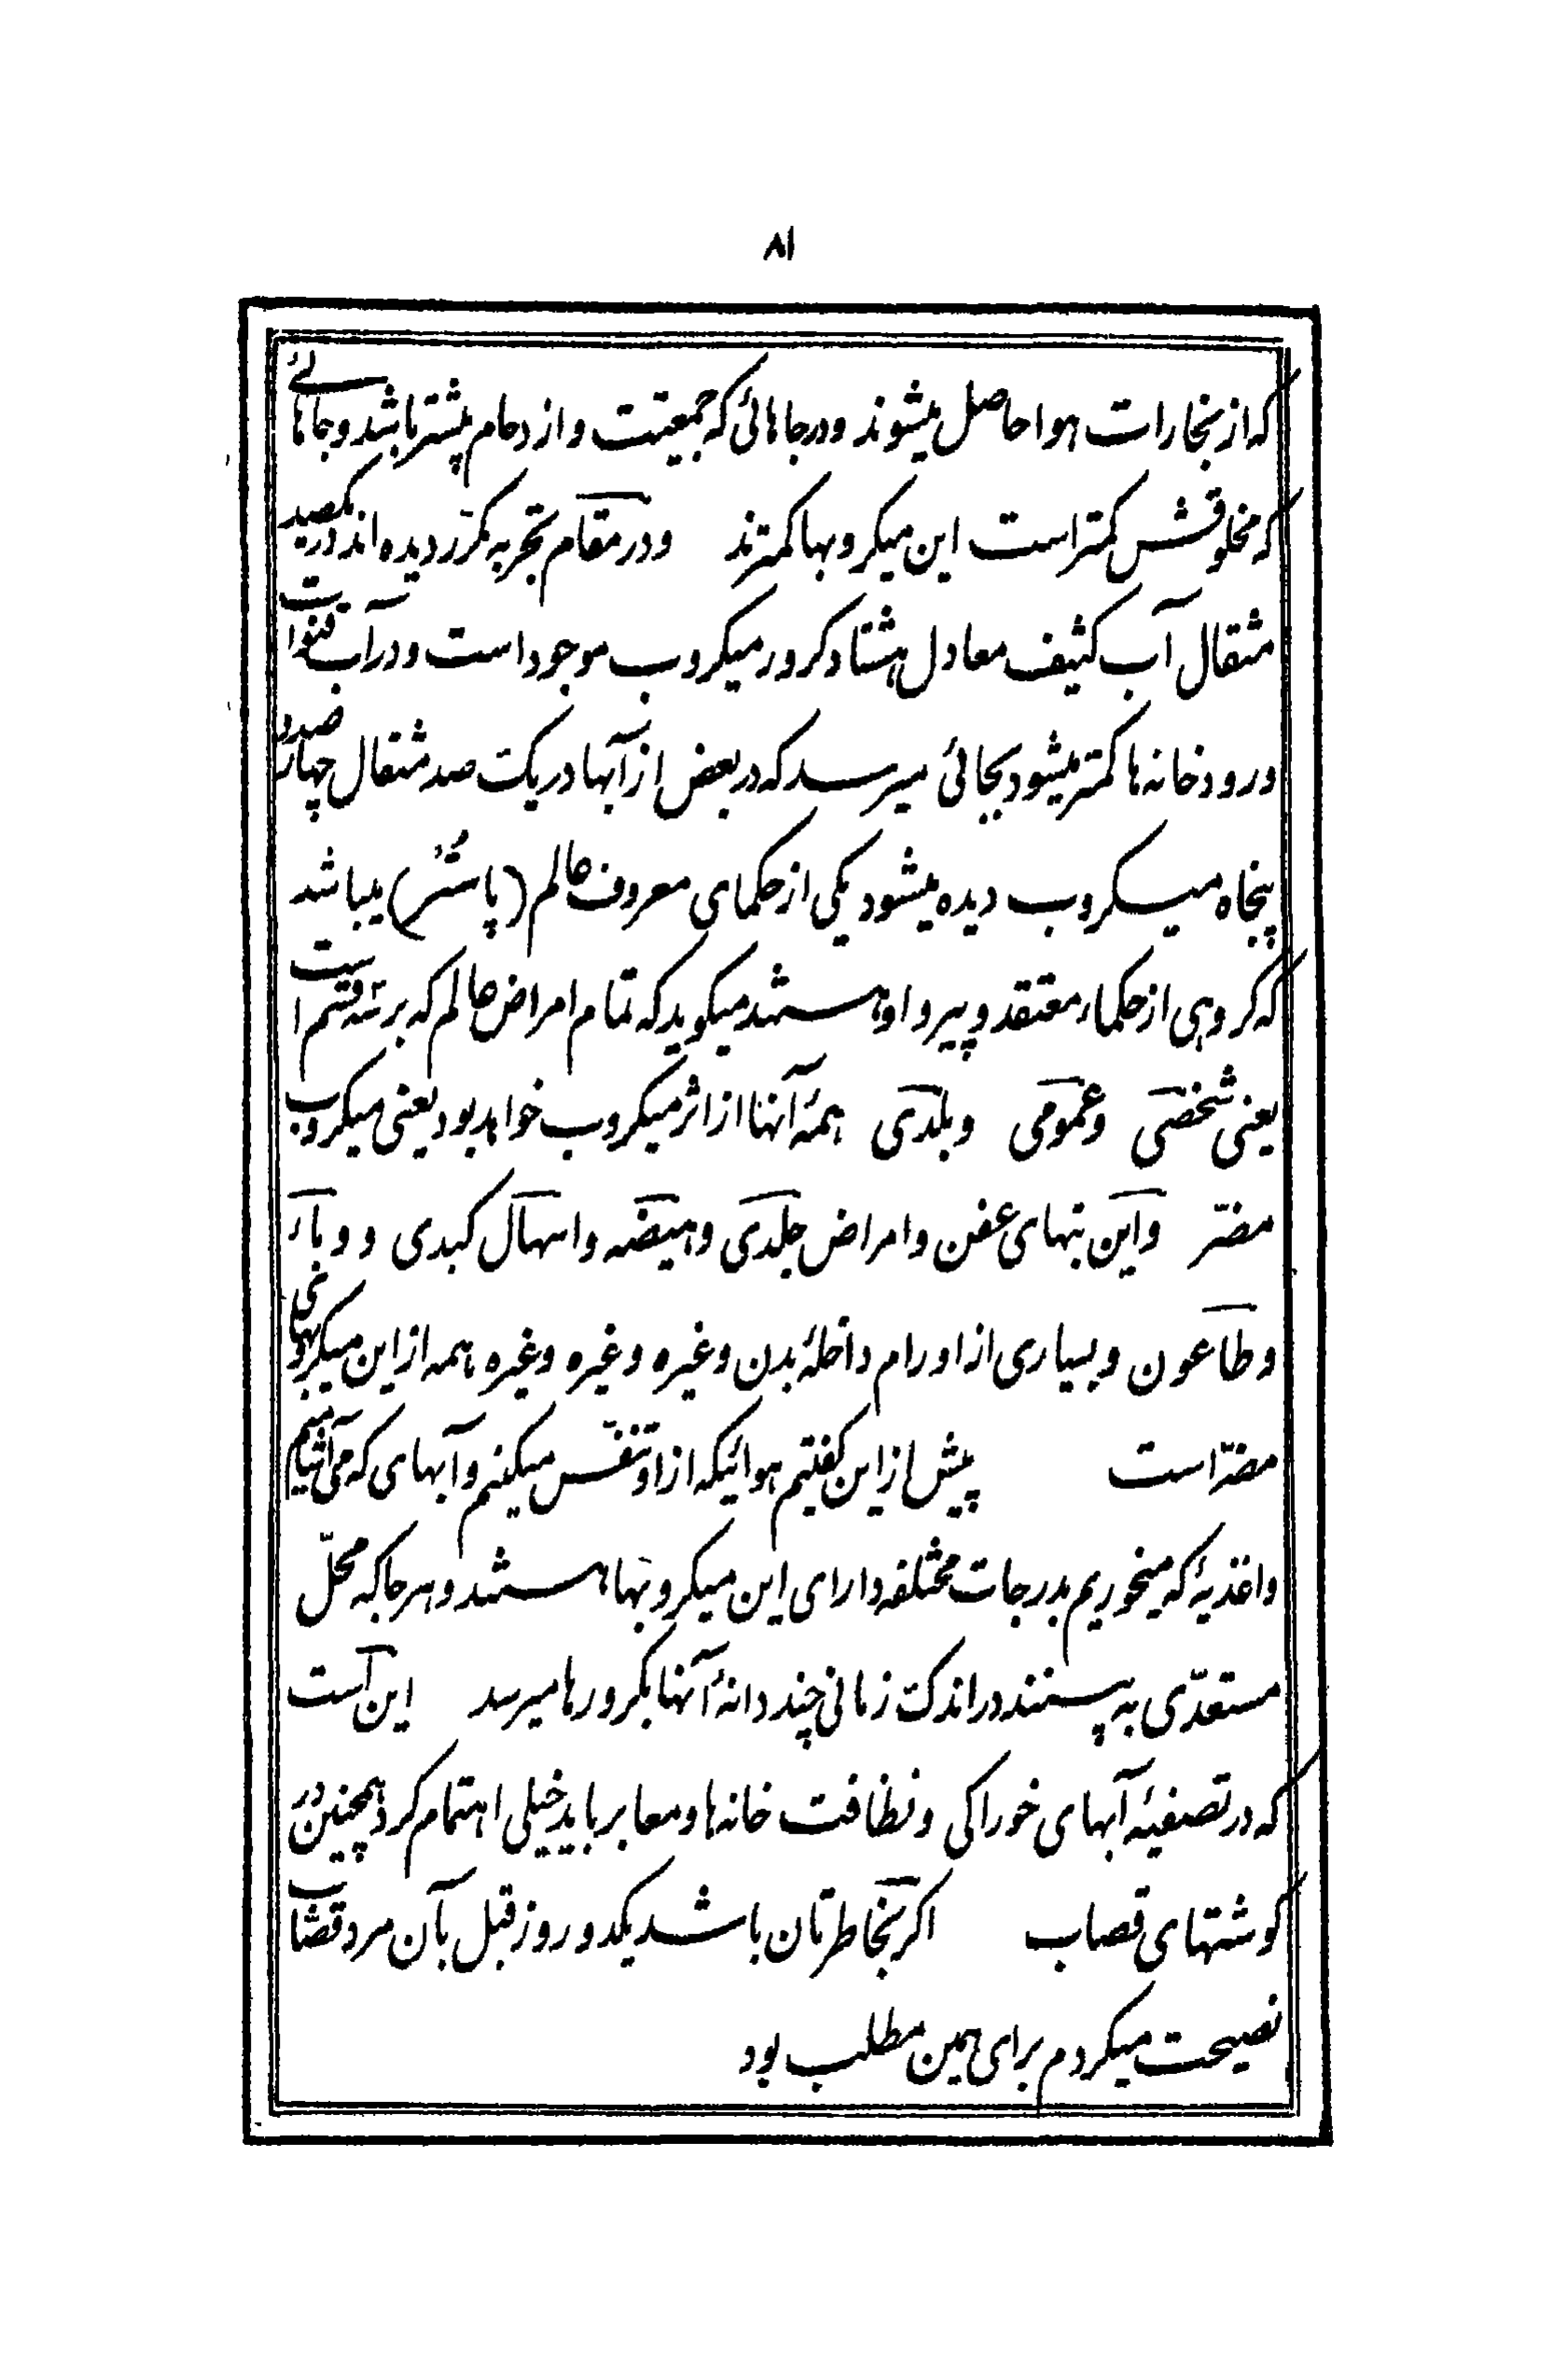 ۸۱
که از بخارات هوا حاصل میشوند و در جاهائی که جمعیّت و ازدحام بیشتر باشد و جاهائی
که مخلوقش کمتر است این میکروبها کمترند و در مقام تجربه مکرّر دیده‌اند در یکصد
مثقال آب کثیف معادل هشتاد کرور میکروب موجود است و در آب قنوات
و رودخانه‌ها کمتر میشود بجائی میرسد که در بعض از آبها در یکصد مثقال چهارصد و
پنجاه میکروب دیده میشود یکی از حکمای معروف عالم (پاستُر) میباشد
که کروهی از حکماء معتقد و پیرو او هستند میکوید که تمام امراض عالم که بر سه قسم است
یعنی شخصی و عمومی و بلدی همهٔ آنها از اثر میکروب خواهد بود یعنی میکروب
مضرّ و این تبهای عفن و امراض جلدی و هیضه و اسهال کبدی و وباء
و طاعون و بسیاری از اورام داخلهٔ بدن و غیره و غیره و غیره همه از این میکروبهای
مضرّ است پیش از این کفتیم هوائیکه از او تنفّس میکنیم و آبهای که می‌آشامیم
و اغذیهٔ که میخوریم بدرجات مختلفه دارای این میکروبها هستند و هر جا که محلّ
مستعدّی به بینند در اندک زمانی چند دانهٔ آنها بکرورها میرسد این است
که در تصفیهٔ آبهای خوراکی و نظافت خانه‌ها و معابر باید خیلی اهتمام کرد و همچنین در
کوشتهای قصاب اکر بخاطرتان باشد یکدو روز قبل بآن مرد قصّاب
نصیحت میکردم برای همین مطلب بود